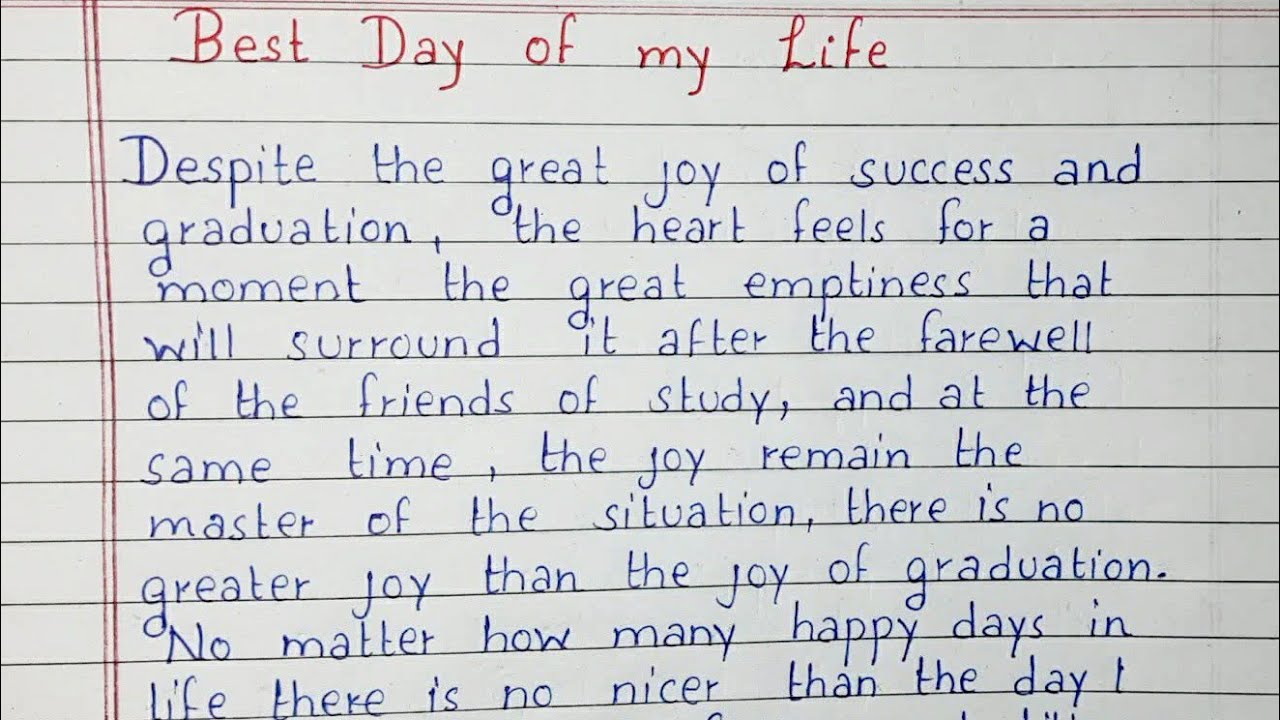 Best Day of my Life
Despite the great joy of success and
graduation, the heart feels for a
moment the great emptiness that
will surround it after the farewell
of the friends of study, and at the
same time, the joy remain the
master of the situation, there is no
greater joy than the joy of graduation.
No matter how many happy days in
life there is no nicer than the day I